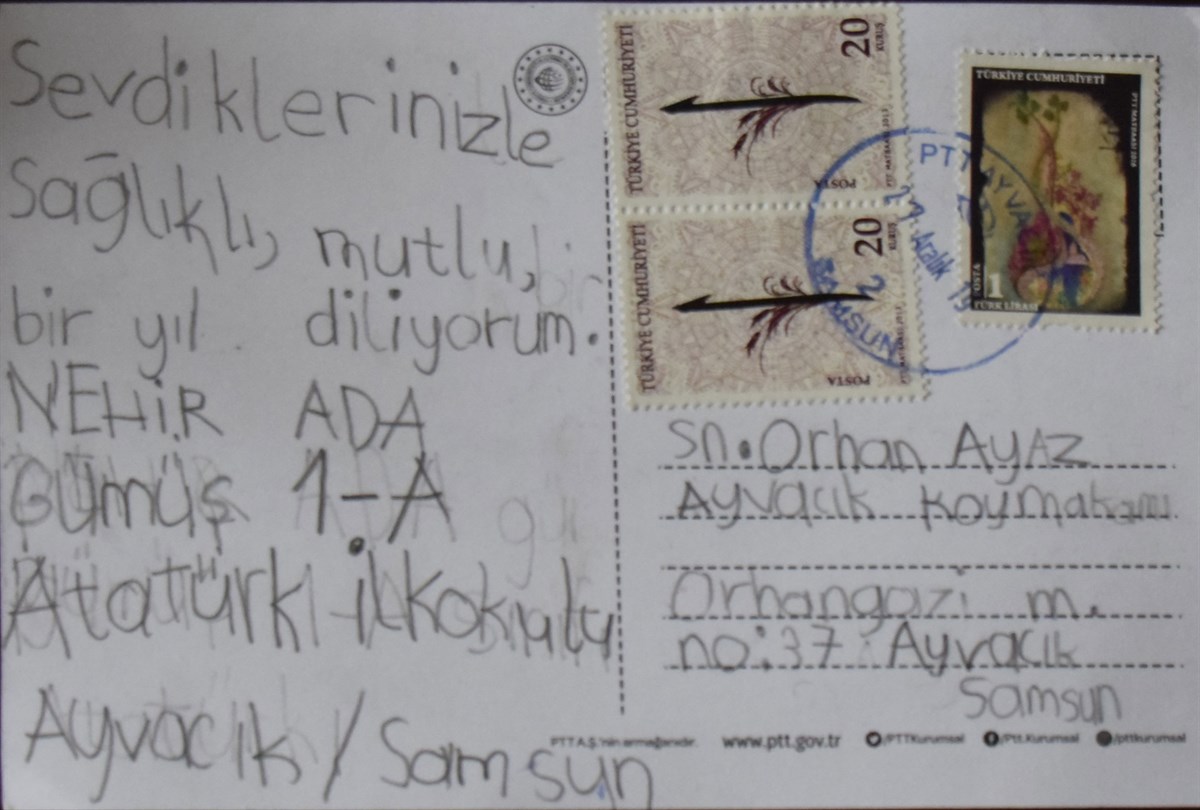 Sevdiklerinizle
Sağlıklı, mutlu,
bir yıl diliyorum.
NEHİR ADA
Gümüş 1-A
Atatürk İlkokulu
Ayvacık / Samsun
TÜRKİYE CUMHURİYETİ
20
KURUŞ
POSTA
TÜRKİYE CUMHURİYETİ
20
KURUŞ
POSTA
TÜRKİYE CUMHURİYETİ
POSTA
1
TÜRK LİRASI
PTT AYVA
Aralık 19
2
SAMSUN
Sn. Orhan AyAZ
Ayvacık Koymakamı
Orhangazi m.
no:37 Ayvacık
Samsun
PTT A.Ş.'nin armağanıdır. www.ptt.gov.tr /PTTKurumsal /Ptt.Kurumsal /pttkurumsal